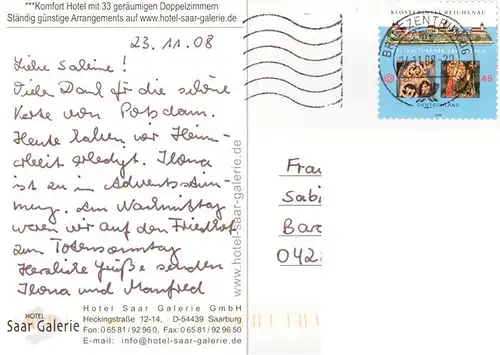 ***Komfort Hotel mit 33 geräumigen Doppelzimmern
Ständig günstige Arrangements auf www.hotel-saar-galerie.de
23.11.08
Liebe Sabine!
Vielen Dank für die schöne
Karte von Potsdam.
Heute haben wir Heim-
arbeit erledigt. Ilona
ist zu in Adventsstim-
mung. Am Nachmittag
waren wir auf den Friedhof
zum Totensonntag
Herzliche Grüße senden
Ilona und Manfred
HOTEL
Saar Galerie
Hotel Saar Galerie GmbH
Heckingstraße 12-14, D-54439 Saarburg
Fon: 0 65 81 / 92 96 0, Fax: 0 65 81 / 92 96 50
E-mail: info@hotel-saar-galerie.de
www.hotel-saar-galerie.de
KLOSTERINSEL REICHENAU
45
DEUTSCHLAND
BRIEFZENTRUM
Frau
Sabi
Bac
042